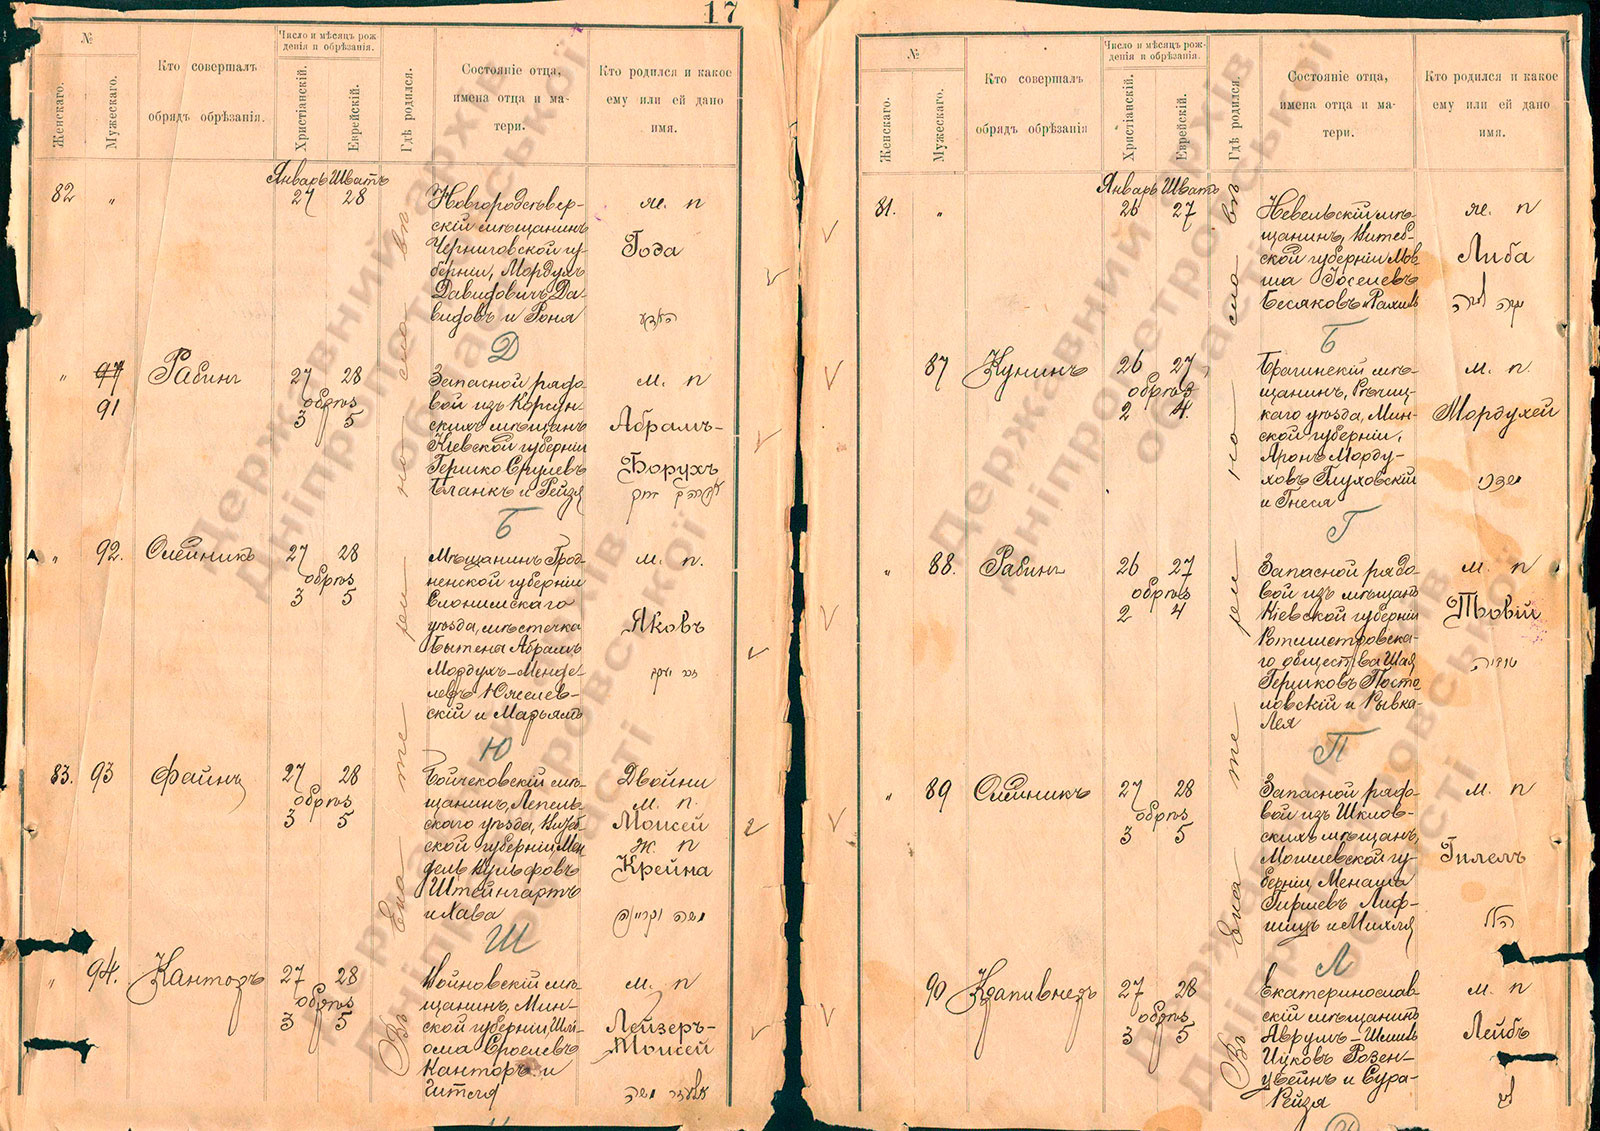 17
№
Женскаго.
Мужескаго.
Кто совершалъ
обрядъ обрѣзанія.
Число и мѣсяцъ рож
денія и обрѣзанія.
Христіанскій.
Еврейскій.
Гдѣ родился.
Состояніе отца,
имена отца и ма-
тери.
Кто родился и какое
ему или ей дано
имя.
Январь Шватъ
82 " 27 28
Новгородсѣвер-
скій мѣщанинъ
Черниговской гу-
берніи, Мордухъ
Давидовичъ Да-
видовъ и Роня
же. п
Года
Д
" 97
91
Рабинъ
27 28
обрѣз
3 5
Запасной рядо-
вой изъ Корсун-
скихъ мѣщанъ
Кіевской губерніи
Гершко Срулевъ
Бланкъ и Рейзя
м. п
Абрамъ-
Борухъ
Б
" 92. Олейникъ
27 28
обрѣз
3 5
Мѣщанинъ Грод-
ненской губерніи
Слонимскаго
уѣзда, мѣстечка
Бытена Абрамъ
Мордухъ-Менде-
левъ
скій и Марьямъ
м. п.
Яковъ
Ю
83. 93 Файнъ
27 28
обрѣз
3 5
щанинъ, Лепель-
скаго уѣзда, Витеб-
ской губерніи Мен
дель Вульфовъ
Штейнгартъ
и Хава
Двойни
м. п.
Моисей
ж. п
Крейна
משה וקריינא
Ш
" 94. Канторъ
27 28
обрѣз
3 5
Койновскій мѣ-
щанинъ, Мин-
ской губерніи Шл
ома Сроелевъ
Канторъ и
Гитля
м. п
Лейзеръ-
Моисей
אליעזר משה
Въ Ека те ри но сла вѣ
№
Женскаго.
Мужескаго.
Кто совершалъ
обрядъ обрѣзанія
Число и мѣсяцъ рож-
денія и обрѣзанія.
Христіанскій.
Еврейскій.
Гдѣ родился.
Состояніе отца,
имена отца и ма-
тери.
Кто родился и какое
ему или ей дано
имя.
Январь Шватъ
81. " 26 27
Невельскій мѣ-
щанинъ, Витеб-
ской губерніи Мов
ша Іоселевъ
Бесяковъ и Рахиль
же. п
Либа
Б
87 Кунинъ
26 27
обрѣз
2 4.
Брагинскій мѣ-
щанинъ, Рѣчиц-
каго уѣзда, Мин-
ской губерніи,
Аронъ Морду-
ховъ Глуховскій
и Гнеся
м. п.
Мордухей
מרדכי
Г
" 88. Рабинъ
26 27
обрѣз
2 4
Запасной рядо-
вой изъ мѣщанъ
Кіевской губерніи
Ротмистровска-
го общества Шая
Гершковъ Посто-
ловскій и Рывка-
Лея
м. п
Товій
טוביה
П
" 89 Олейникъ
27 28
обрѣз
3 5
Запасной рядо-
вой изъ Шклов-
скихъ мѣщанъ,
Могилевской гу-
берніи Менаша
Гиршевъ Лиф-
шицъ и Михля
м. п
Гилелъ
הלל
Л
90 Крапивнеръ
27 28
обрѣз
3 5
Екатеринослав-
скій мѣщанинъ
Аврумъ-Шлиома
Ицковъ Розен-
цвейнъ и Сура-
Рейзя
м. п
Лейбъ
ליב
Въ Ека те ри но сла вѣ
Державний архів
Дніпропетровської
області